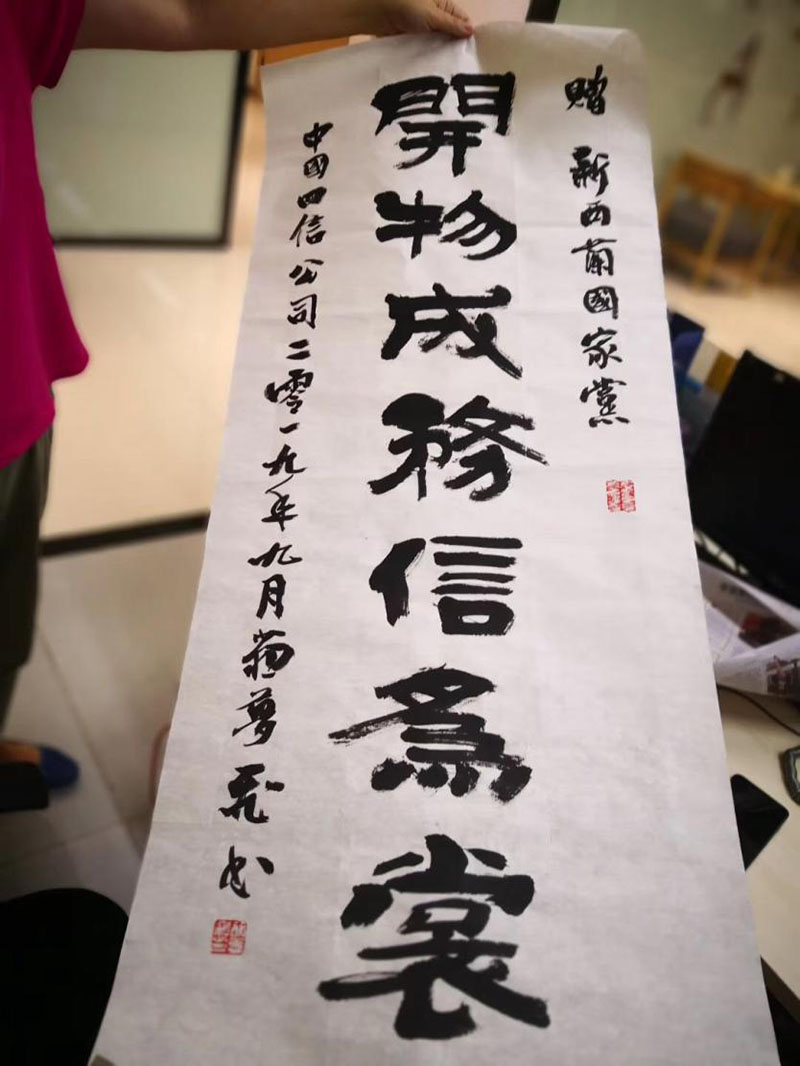 贈 新西蘭國家黨
開物成務信爲裳
中國四信公司二零一九年九月夢飛书